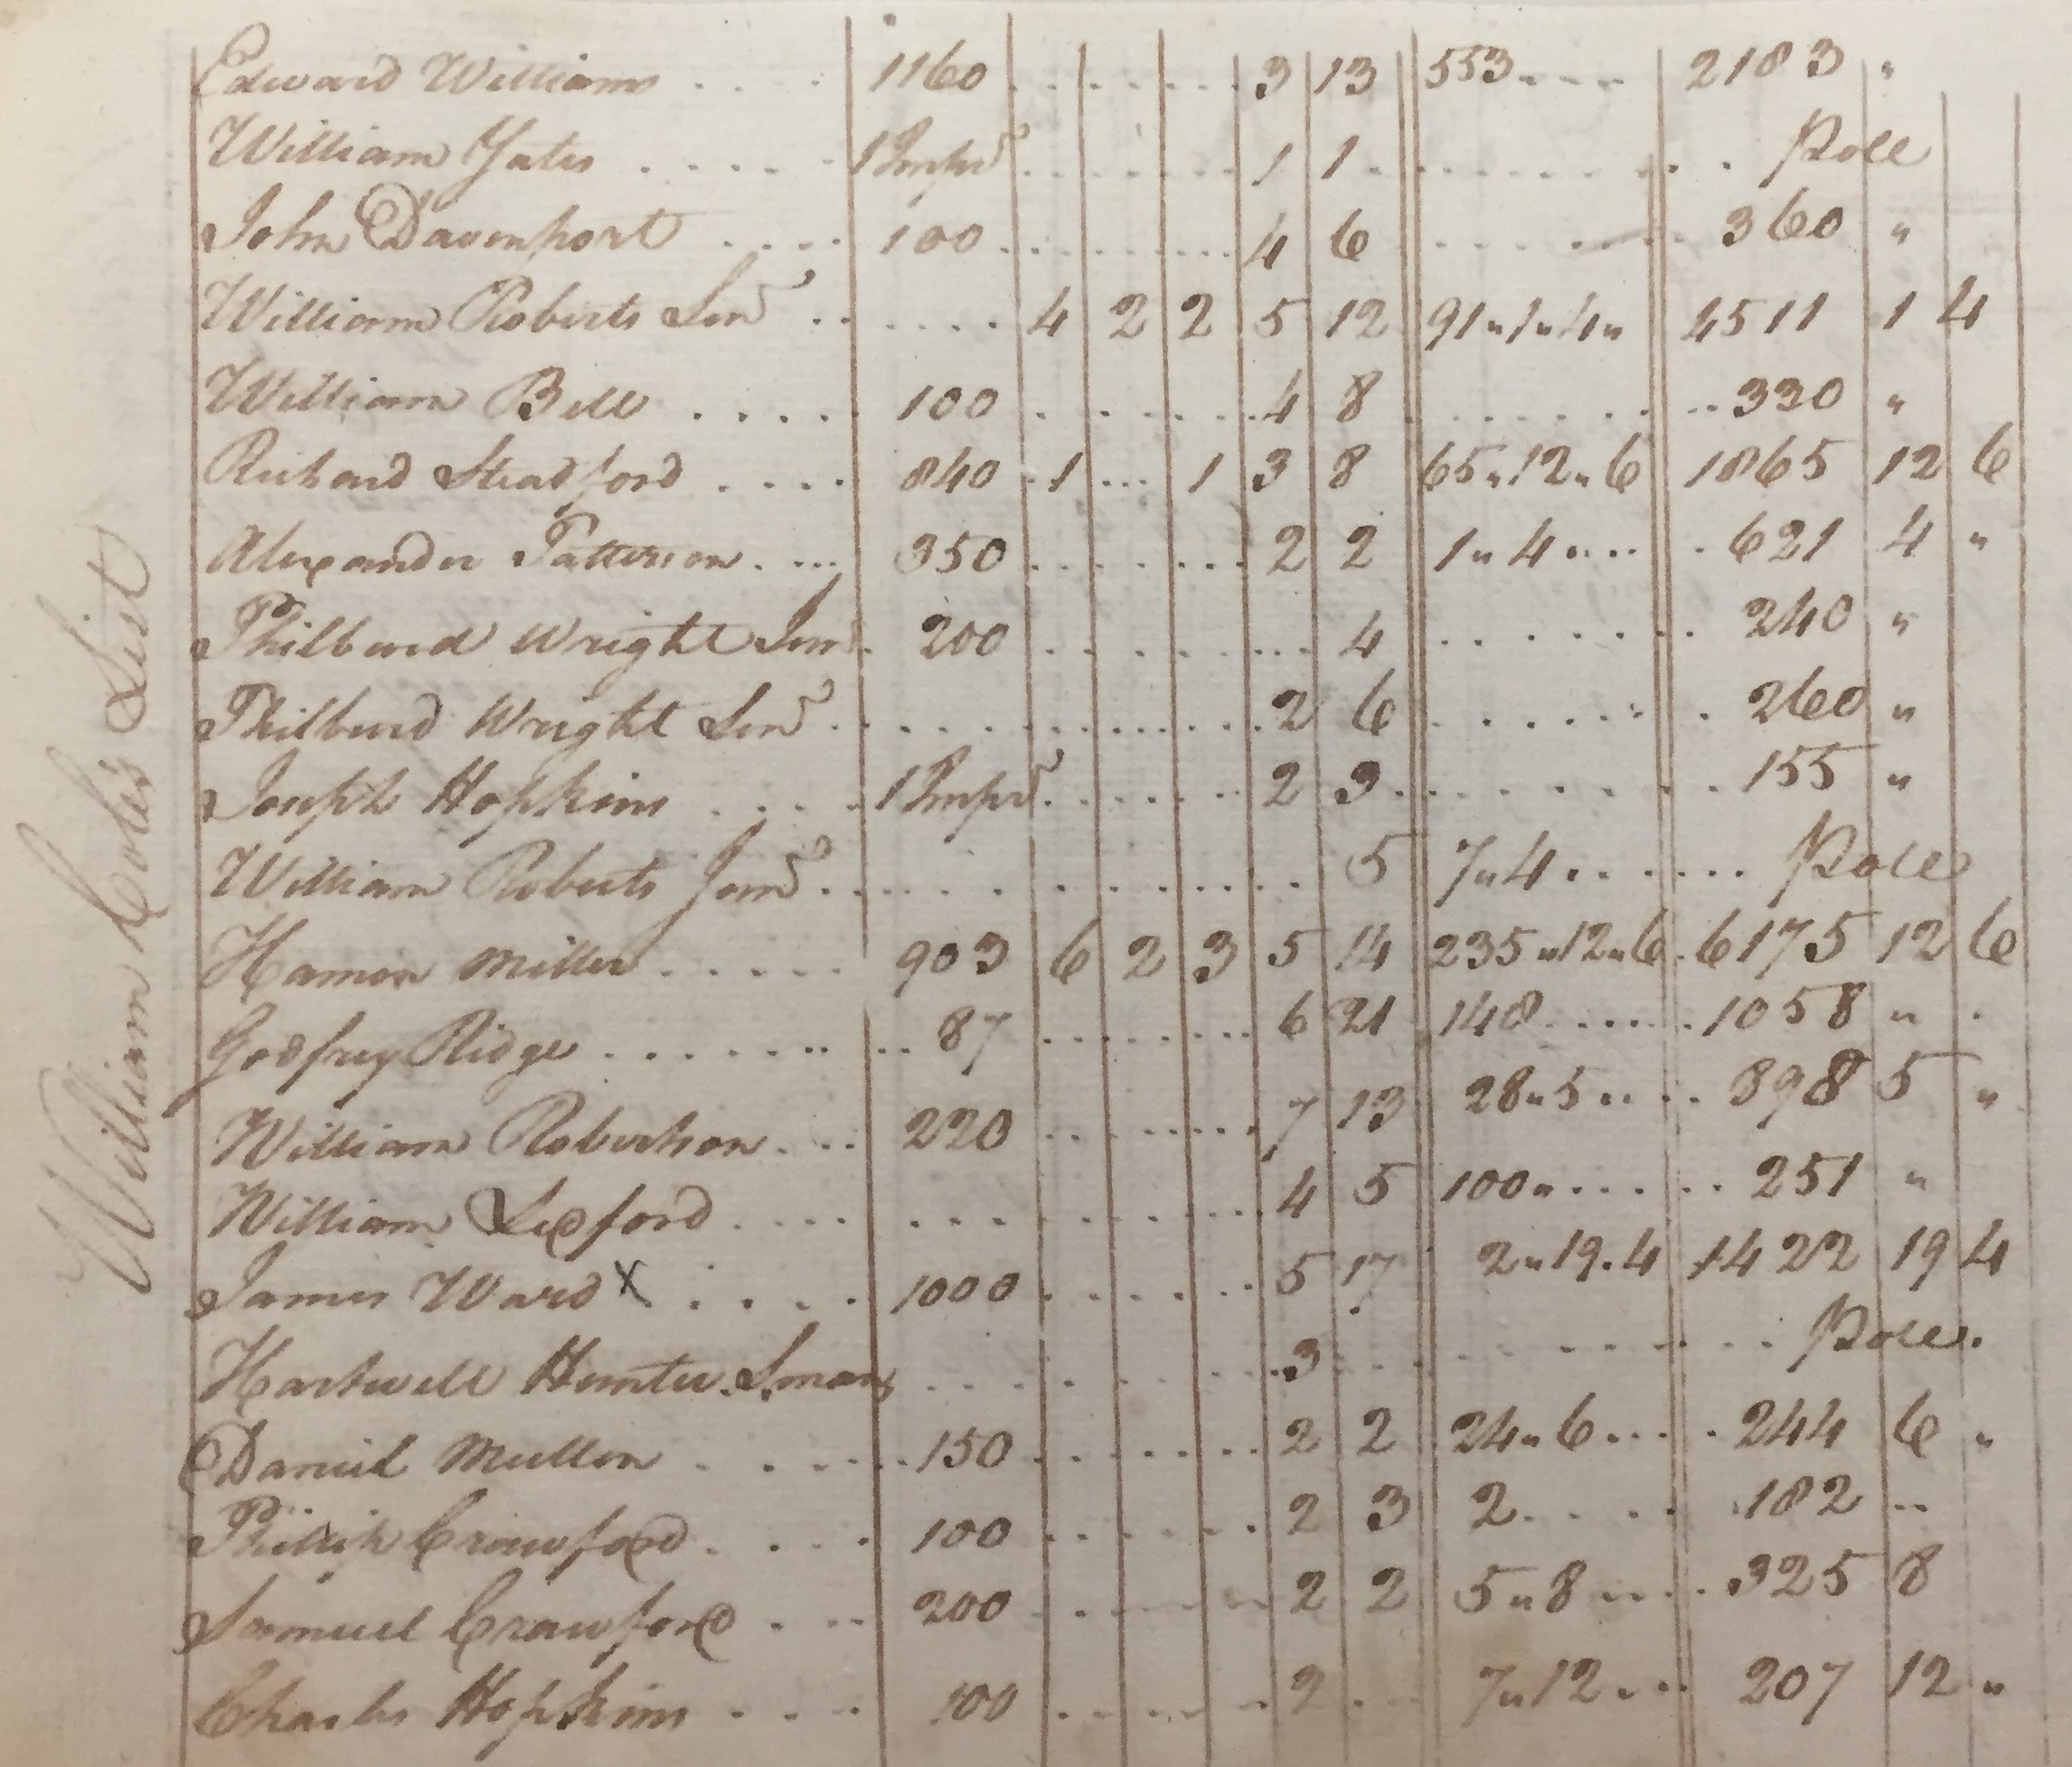 William Cole's List
Edward Williams .... 1160 ...... 3 13 553 ... 2183 "
William Yates .... 1 Impr ...... 1 1 ...... Pole
John Davenport .... 100 ...... 4 6 ...... 360 "
William Roberts Senr ...... 4 2 2 5 12 91"1"4" 4511 1 4
William Bell ..... 100 ...... 4 8 ...... 330 "
Richard Stradford .... 840 . 1 ... 1 3 8 65"12"6 1865 12 6
Alexander Patterson .... 350 ...... 2 2 1"4 .... 621 4 "
Philburd Wright Junr . 200 ...... 4 ...... 240 "
Philburd Wright Senr ...... 2 6 ...... 260 "
Joseph Hopkins .... 1 Impr ...... 2 3 ...... 155 "
William Roberts Junr ...... 5 7"4 ..... Pole
Hamon Miller ..... 903 6 2 3 5 14 235"12"6 . 6175 12 6
Godfrey Ridge ...... 87 ...... 6 21 148 ..... 1058 " .
William Robertson .... 220 ...... 7 13 28"5 .... 898 5 "
William Lexford .... ...... 4 5 100" ..... 251 "
James Ward X .... 1000 ...... 5 17 2"19.4 1422 19 4
Hartwell Hunter ...... 3 ...... Pole.
Daniel Mullen .... 150 ...... 2 2 24"6 .... 244 6 "
Phillip Crawford .... 100 ...... 2 3 2 .... 182 ..
Samuel Crawford ... 200 ...... 2 2 5"8 .... 325 8
Charles Hopkins .... 100 ...... 2 .. 7"12 ... 207 12 "